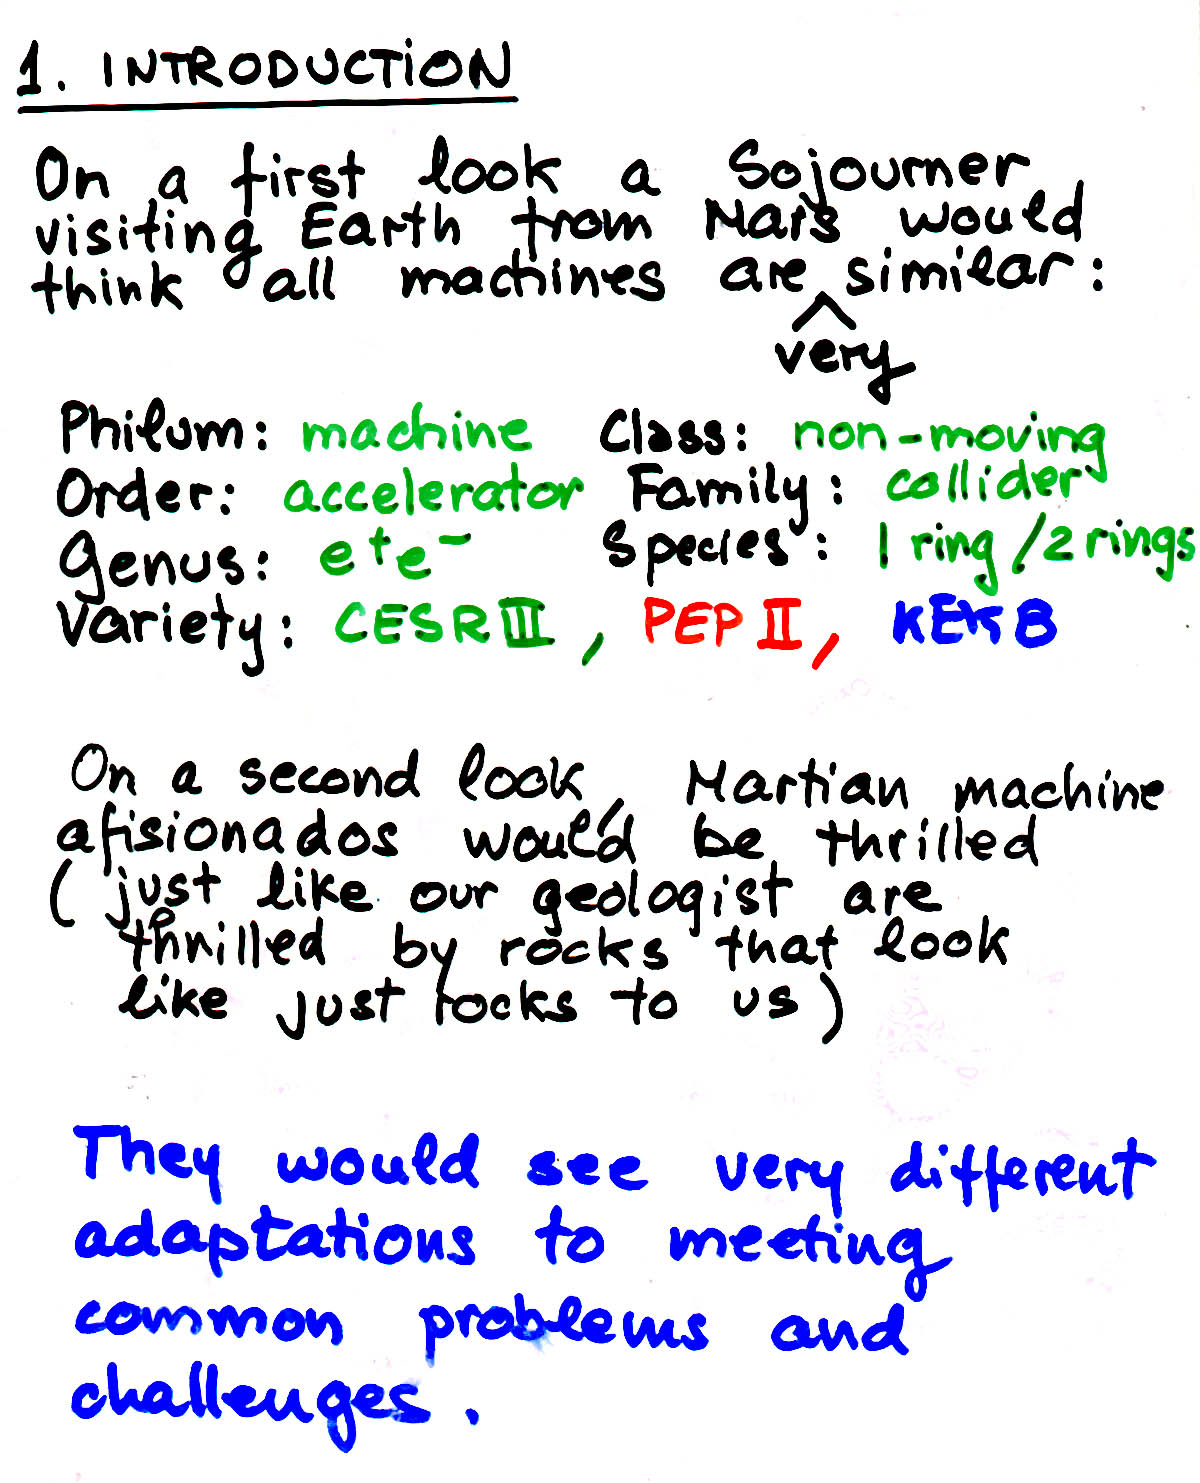 1. INTRODUCTION
On a first look a Sojourner
visiting Earth from Mars would
think all machines are very similar:
Philum: machine Class: non-moving
Order: accelerator Family: collider
Genus: e+e- Species: 1 ring/2 rings
Variety: CESR III, PEP II, KEK B
On a second look, Martian machine
afisionados would be thrilled
(just like our geologist are
thrilled by rocks that look
like just rocks to us)
They would see very different
adaptations to meeting
common problems and
challenges.